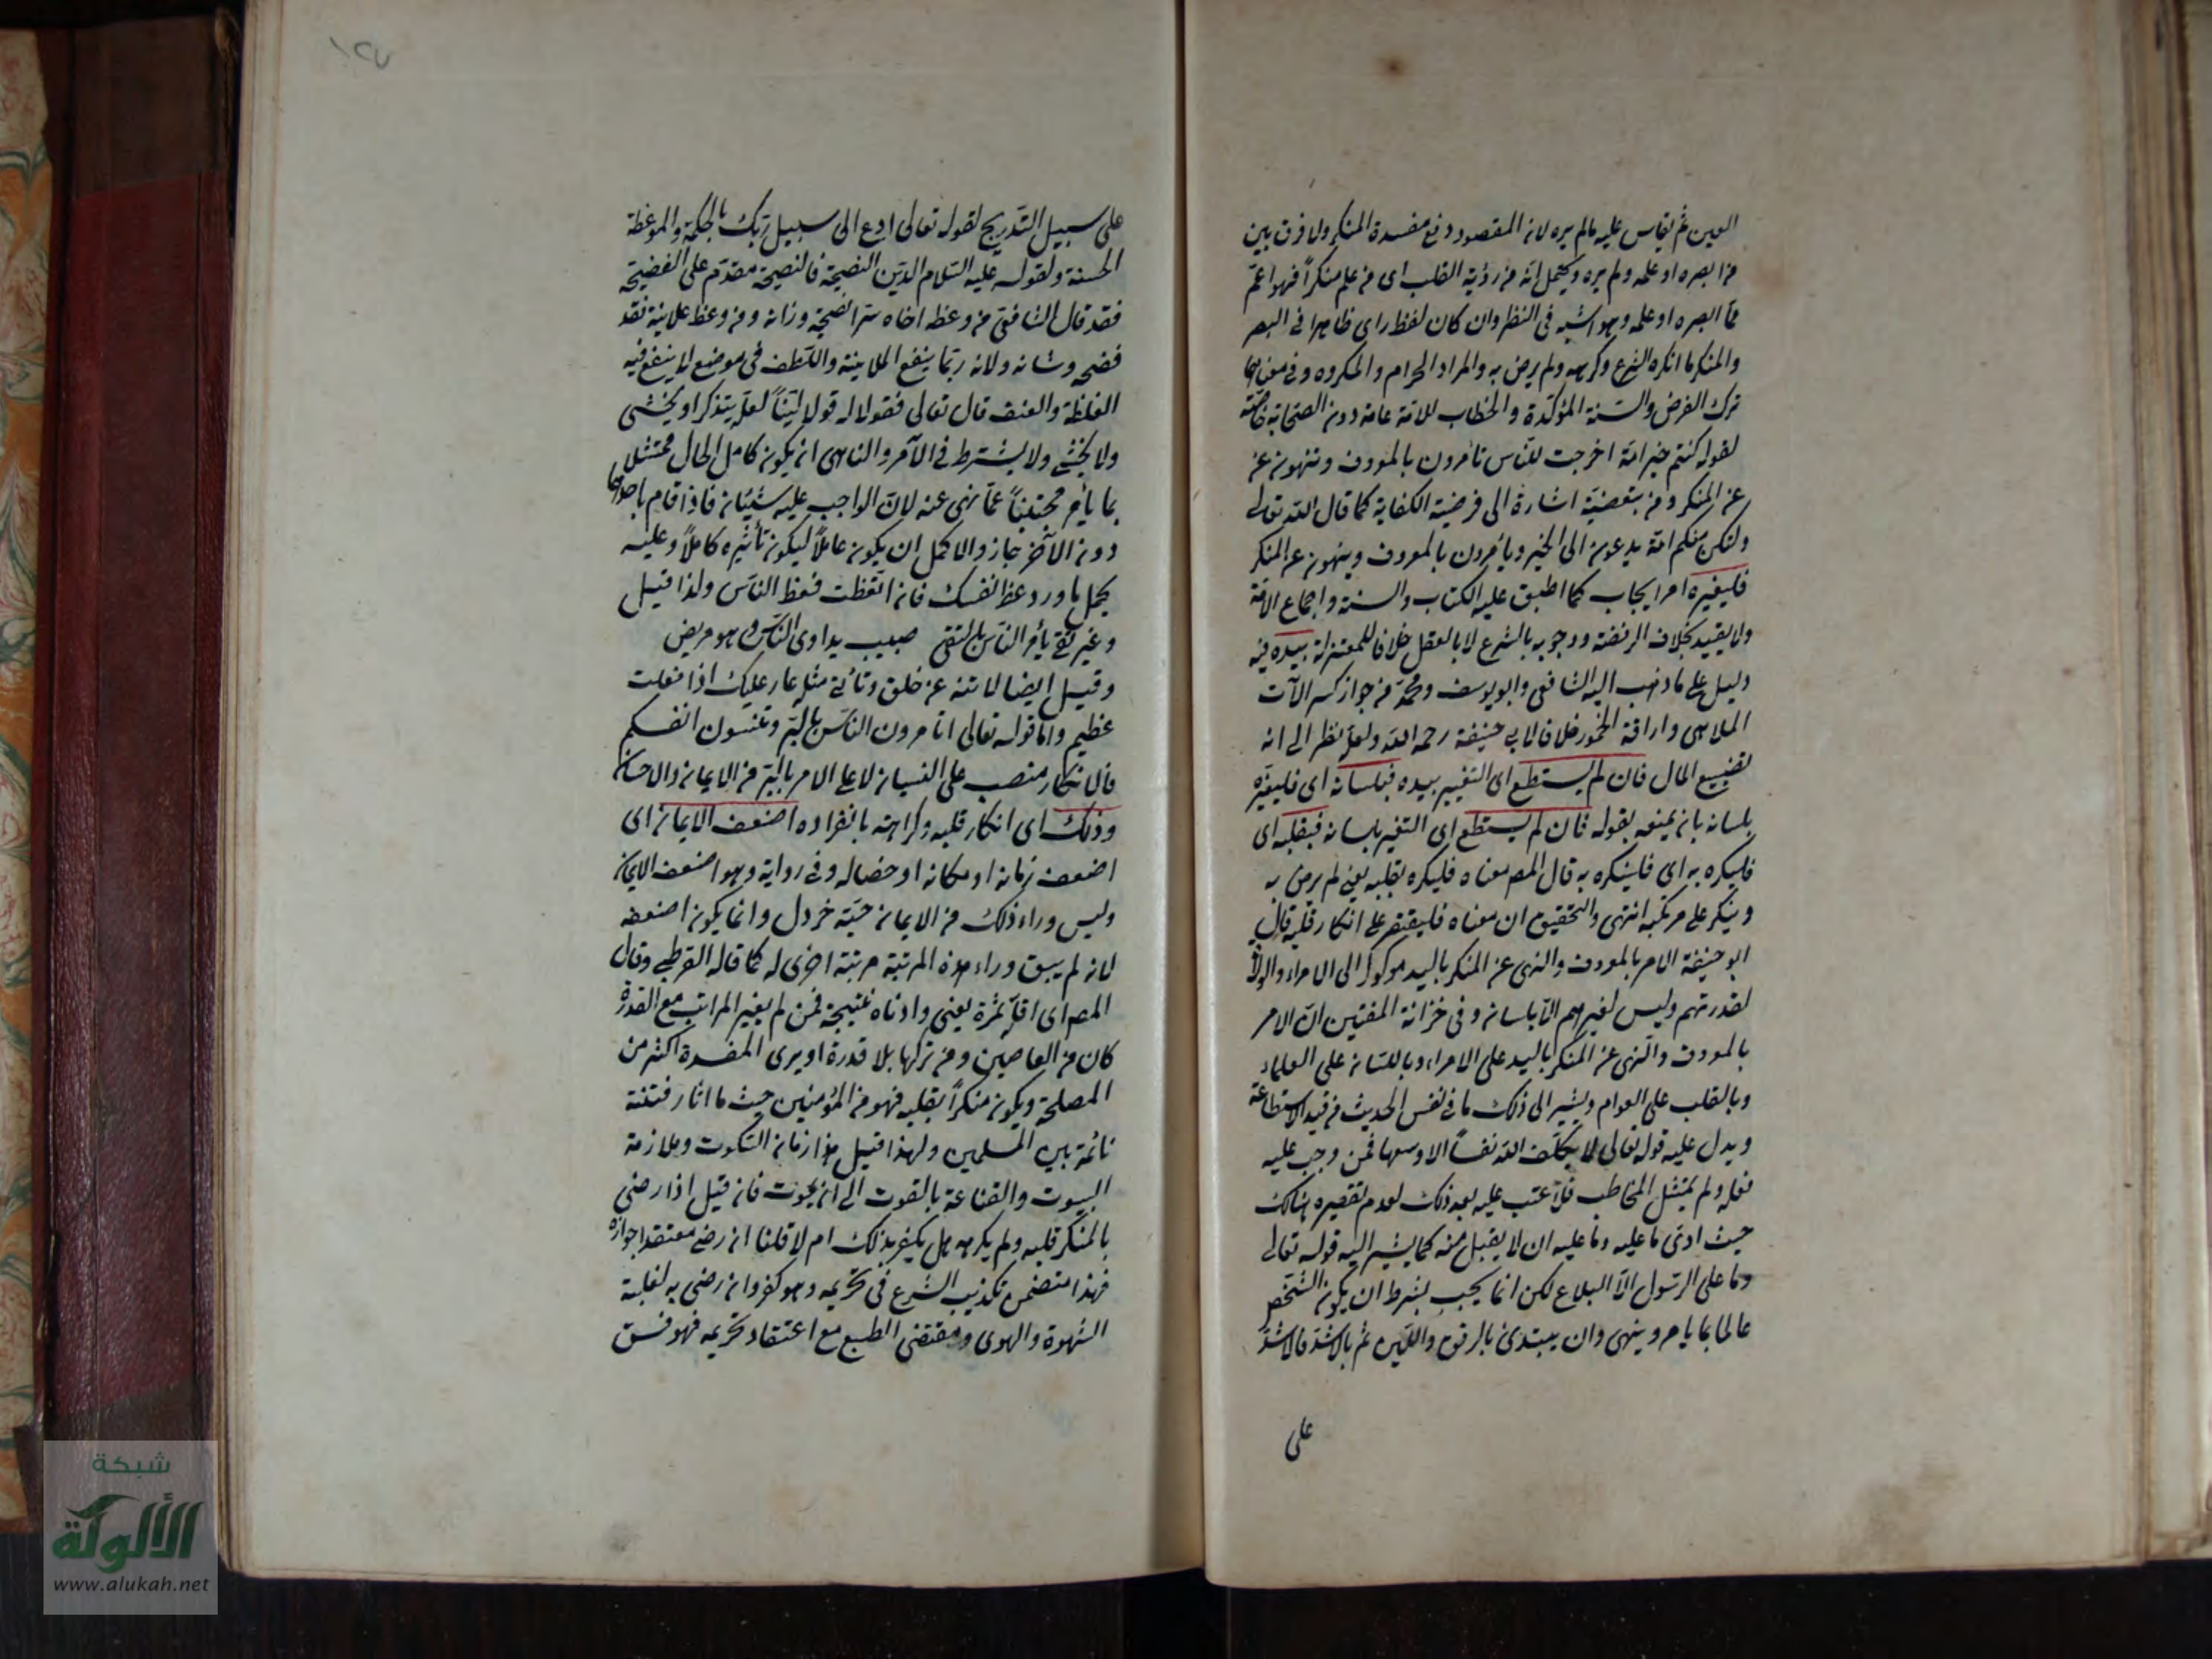 العين ثم يقاس عليه مالم يره لان المقصود دفع مفسدة المنكر ولا فرق بين
من ابصره او علمه ولم يره ويحتمل انه من رؤية القلب اى من علم منكراً فهو اعمّ
ممّا ابصره او علمه وهو اشبه فى النظر وان كان لفظ راى ظاهرا فى البصر
والمنكر ما انكره الشرع وكرهه ولم يرض به والمراد الحرام والمكروه وفى معناهما
ترك الفرض والسنة المؤكّدة والخطاب للامّة عامة دون الصحابة خاصّة
لقوله كنتم خير امّة اخرجت للنّاس تأمرون بالمعروف وتنهون عن
عن المنكر ومن تبعضيّة اشارة الى فرضية الكفاية كما قال الله تعالى
ولتكن منكم امّة يدعون الى الخير ويأمرون بالمعروف وينهون عن المنكر
فليغيّره امر ايجاب كما اطبق عليه الكتاب والسنة واجماع الامّة
ولا يقيد بخلاف الرفضة ووجوبه بالشرع لا بالعقل خلافا للمعتزلة بيده فيه
دليل على ما ذهب اليه الشافعى وابو يوسف ومحمّد من جواز كسر الآت
الملاهى واراقة الخمور خلافا لابى حنيفة رحمه الله ولعلّه نظر الى انه
تضييع المال فان لم يستطع اى التغيير بيده فبلسانه اى فليغيّره
بلسانه بان يمنعه بقوله فان لم يستطع اى التغير بلسانه فبقلبه اى
فليكره به اى فلينكره به قال المص معناه فليكره بقلبه يعنى لم يرض به
وينكر على مرتكبه انتهى والتحقيق ان معناه فليقتصر على انكار قلبه قال
ابو حنيفة الامر بالمعروف والنهى عن المنكر باليد موكول الى الامراء والولاة
لقدرتهم وليس لغيرهم الّا بلسانه وفى خزانة المفتين انّ الامر
بالمعروف والنهى عن المنكر باليد على الامراء وباللسان على العلماء
وبالقلب على العوام ويشير الى ذلك ما فى نفس الحديث من قيد الاستطاعة
ويدل عليه قوله تعالى لا يكلّف الله نفساً الا وسعها فمن وجب عليه
فعله ولم يمتثل المخاطب فلا عتب عليه بعد ذلك لعدم تقصيره هنالك
حيث ادّى ما عليه وما عليه ان لا يقبل منه كما يشير اليه قوله تعالى
وما على الرّسول الّا البلاغ لكن انما يجب بشرط ان يكون الشّخص
عالما بما يامر وينهى وان يبتدئ بالرفق واللّين ثم بالاشدّ فالاشدّ
على
على سبيل التّدريج لقوله تعالى ادع الى سبيل ربّك بالحكمة والموعظة
الحسنة ولقوله عليه السّلام الدّين النصيحة فالنصيحة مقدّم على الفضيحة
فقد قال الشافعى من وعظ اخاه سرّا نصحه وزانه ومن وعظ علانية فقد
فضحه وشانه ولانه ربّما ينفع الملاينة والتلطف فى موضع لا ينفع فيه
الغلظة والعنف قال تعالى فقولا له قولا ليّناً لعلّه يتذكر او يخشى
ولا يخشى ولا يشترط فى الآمر والناهى ان يكون كامل الحال ممتثلا
بما يأمر مجتنباً عمّا نهى عنه لانّ الواجب عليه شيئان فاذا قام باحدهما
دون الآخر جاز والاكمل ان يكون عاملاً ليكون تأثيره كاملاً وعليه
يحمل ما ورد عظ نفسك فان اتّعظت فعظ النّاس ولذا قيل
وغير تقى يأمر النّاس بالتقى طبيب يداوى النّاس وهو مريض
وقيل ايضا لا تنه عن خلق وتأتى مثله عار عليك اذا فعلت
عظيم وامّا قوله تعالى اتأمرون النّاس بالبرّ وتنسون انفسكم
فالانكار منصب على النسيان لا على الامر بالبرّ من الايمان والاحسان
وذلك اى انكار قلبه وكراهته بانفراده اضعف الايمان اى
اضعف زمانه او مكانه او خصاله وفى رواية وهو اضعف الايمان
وليس وراء ذلك من الايمان حبّة خردل وانما يكون اضعفه
لانه لم يبق وراء هذه المرتبة مرتبة اخرى له كما قاله القرطبى وقال
المص اى اقلّه ثمرة يعنى وادناه نتيجة فمن لم يغير المراتب مع القدرة
كان من العاصين ومن تركها بلا قدرة او يرى المفسدة اكثر من
المصلحة ويكون منكراً بقلبه فهو من المؤمنين حيث ما اثار فتنة
نائمة بين المسلمين ولهذا قيل هذا زمان السّكوت وملازمة
البيوت والقناعة بالقوت الى ان يموت فان قيل اذا رضى
بالمنكر قلبه ولم يكرهه هل يكفر بذلك ام لا قلنا ان رضى معتقدا جوازه
فهذا متضمن تكذيب الشرع فى تحريمه وهو كفر وان رضى به لغلبة
الشهوة والهوى ومقتضى الطبع مع اعتقاد تحريمه فهو فسق
شبكة
الألوكة
www.alukah.net